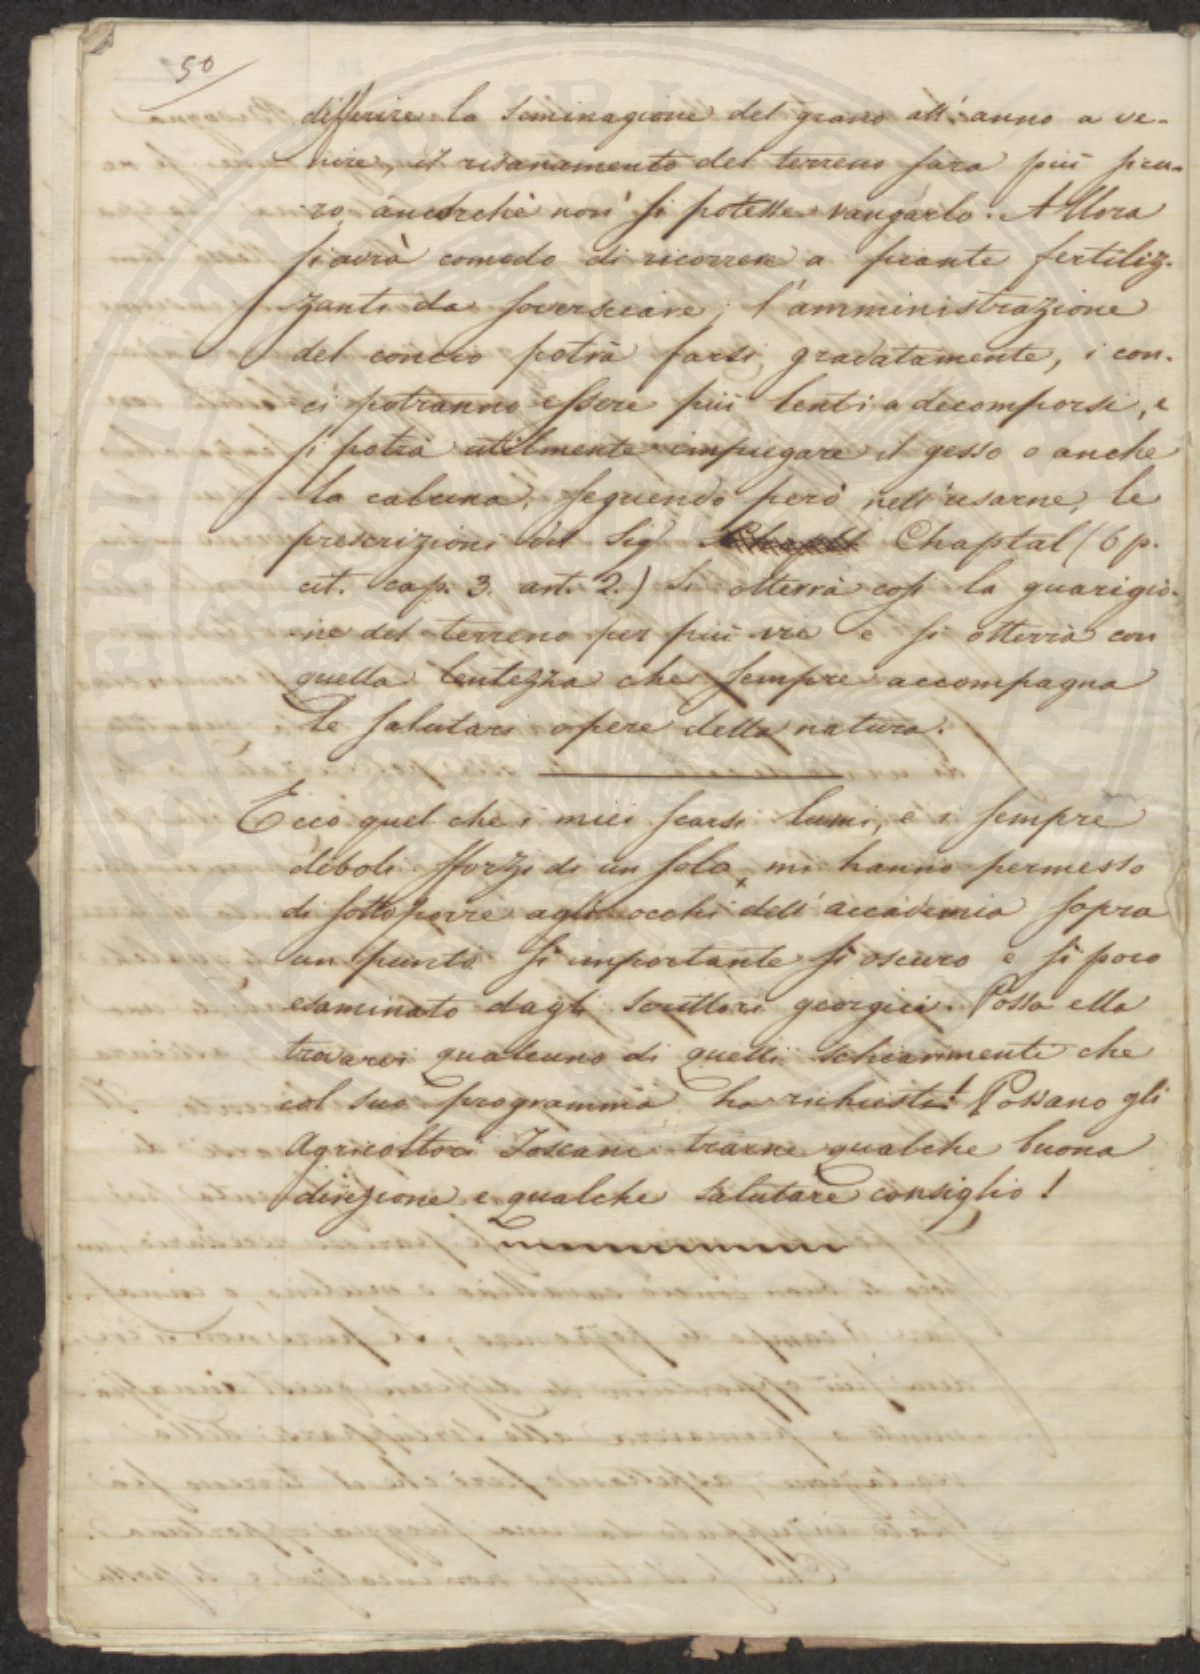 50
differire la seminagione del grano all'anno a ve-
nire, il risanamento del terreno sarà più sicu-
ro, ancorchè non si potesse vangarlo. Allora
si avrà comodo di ricorrere a piante fertiliz-
zanti da soversciare; l'amministrazione
del concio potrà farsi, gradatamente, i con-
ci potranno essere più lenti a decomporsi, e
si potrà utilmente impiegare il gesso o anche
la calcina, seguendo però nell'usarne, le
prescrizioni del Sigr Chaptal (6 p.
cit. cap. 3. art. 2.) Si otterrà così la guarigio-
ne del terreno per più vie e si otterrà con
quella lentezza che sempre accompagna
le salutari opere della natura.
Ecco quel che i miei scarsi lumi, e i sempre
deboli sforzi di un solo mi hanno permesso
di sottoporre agli occhi dell'accademia sopra
un punto sì importante sì oscuro e sì poco
esaminato dagli scrittori georgici. Possa ella
trovarvi qualcuno di quelli schiarimenti che
col suo programma ha richiesti! Possano gli
Agricoltori Toscani trarne qualche buona
direzione e qualche salutare consiglio!